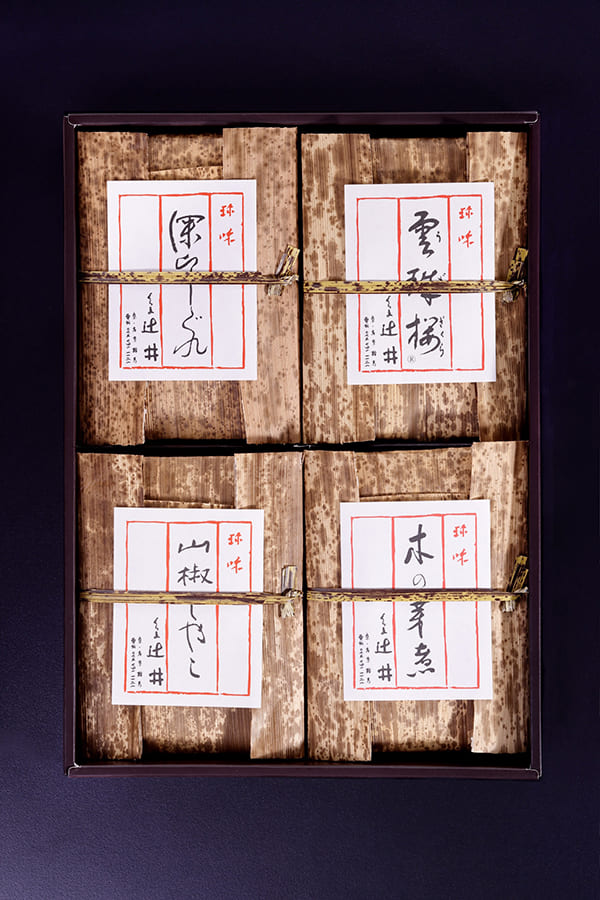 珍味
雲珠桜
う
ざくら
®
くらま 辻井
珍味
深山しぐれ
くらま 辻井
珍味
木の芽煮
くらま 辻井
珍味
山椒じゃこ
くらま 辻井